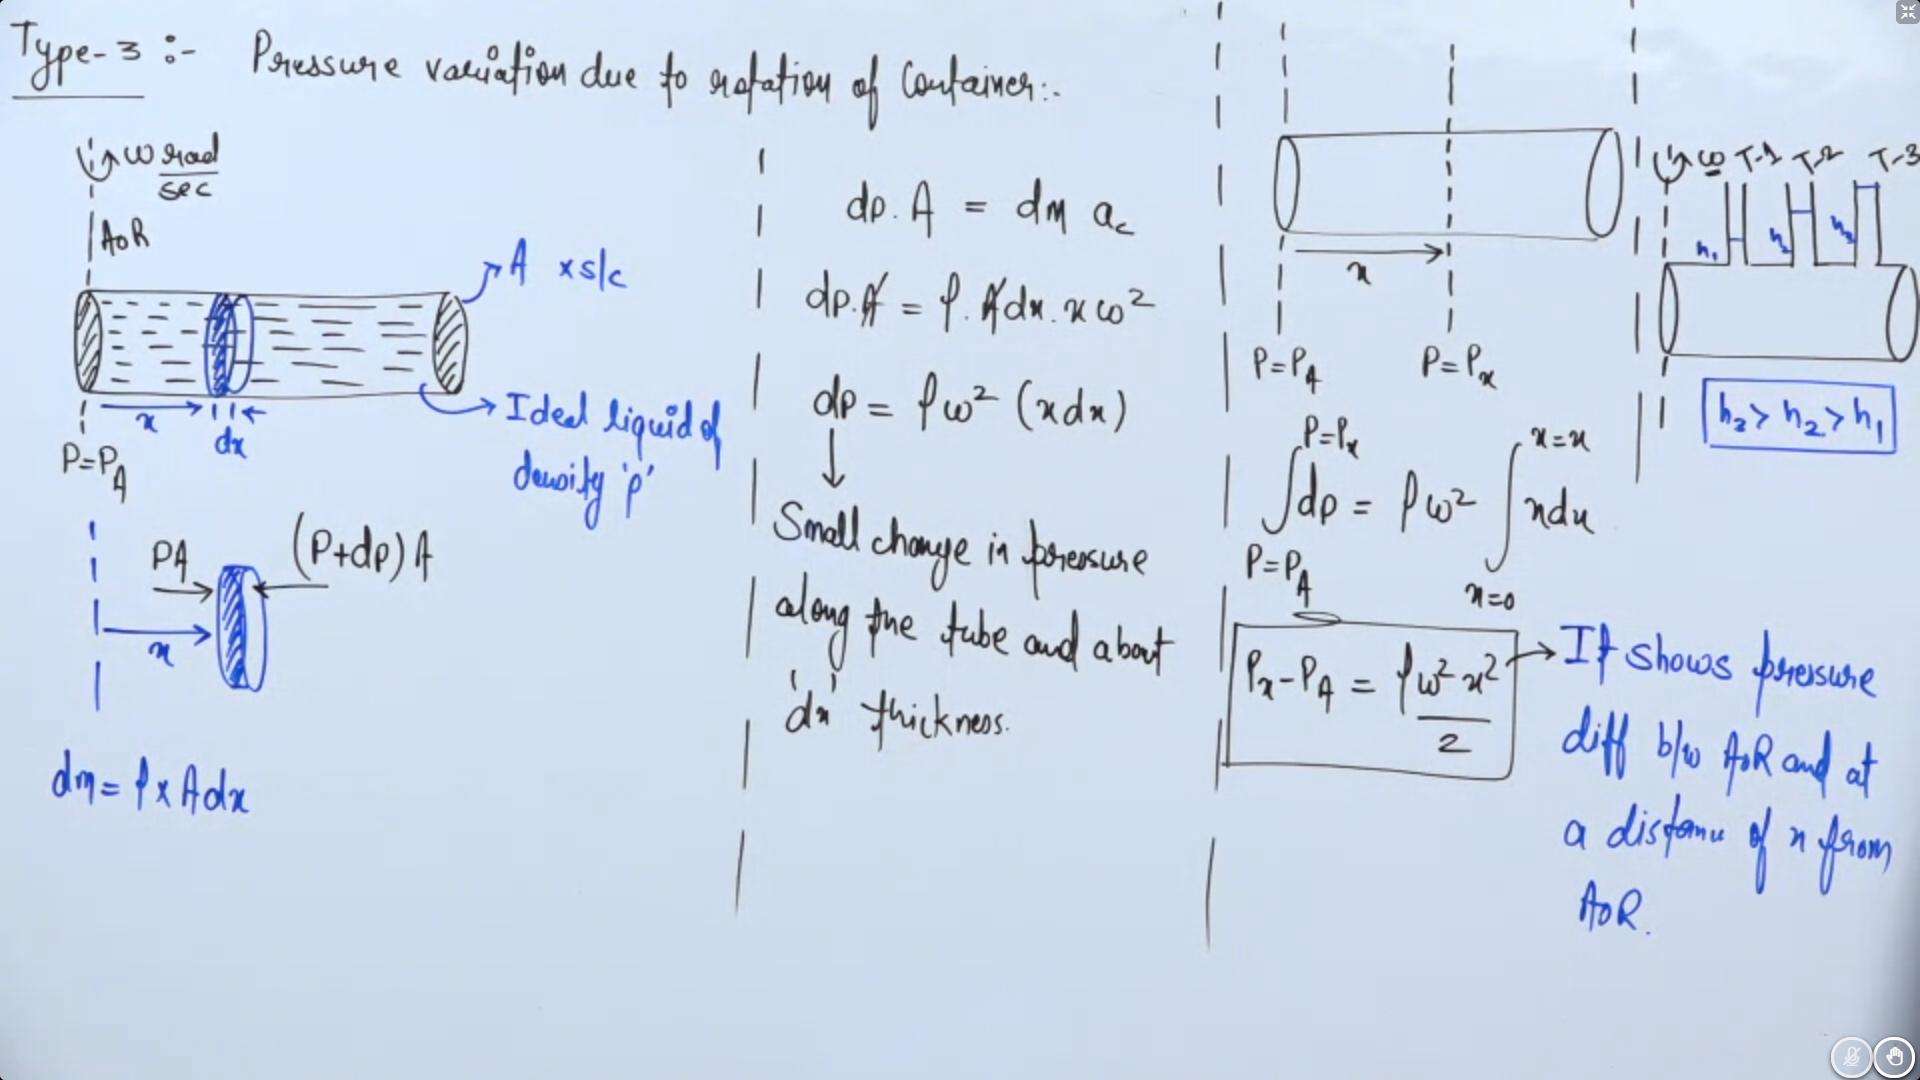 Type-3 :- Pressure variation due to rotation of Container:-
ω rad/sec
AOR
A xs/c
x
dx
Ideal liquid of
density 'ρ'
P=P_A
PA
(P+dp)A
x
dm = ρ x Adx
dp. A = dm a_c
dp.A = ρ.Adx. xω²
dp = ρω² (xdx)
↓
Small change in pressure
along the tube and about
'dx' thickness.
x
P=P_A P=P_x
∫dp = ρω² ∫xdx
P=P_x
P=P_A
x=x
x=0
P_x-P_A = ρω²x²/2
→ It shows pressure
diff b/w AOR and at
a distance of x from
AOR.
ω T-1 T-2 T-3
h₁ h₂ h₃
h₃ > h₂ > h₁